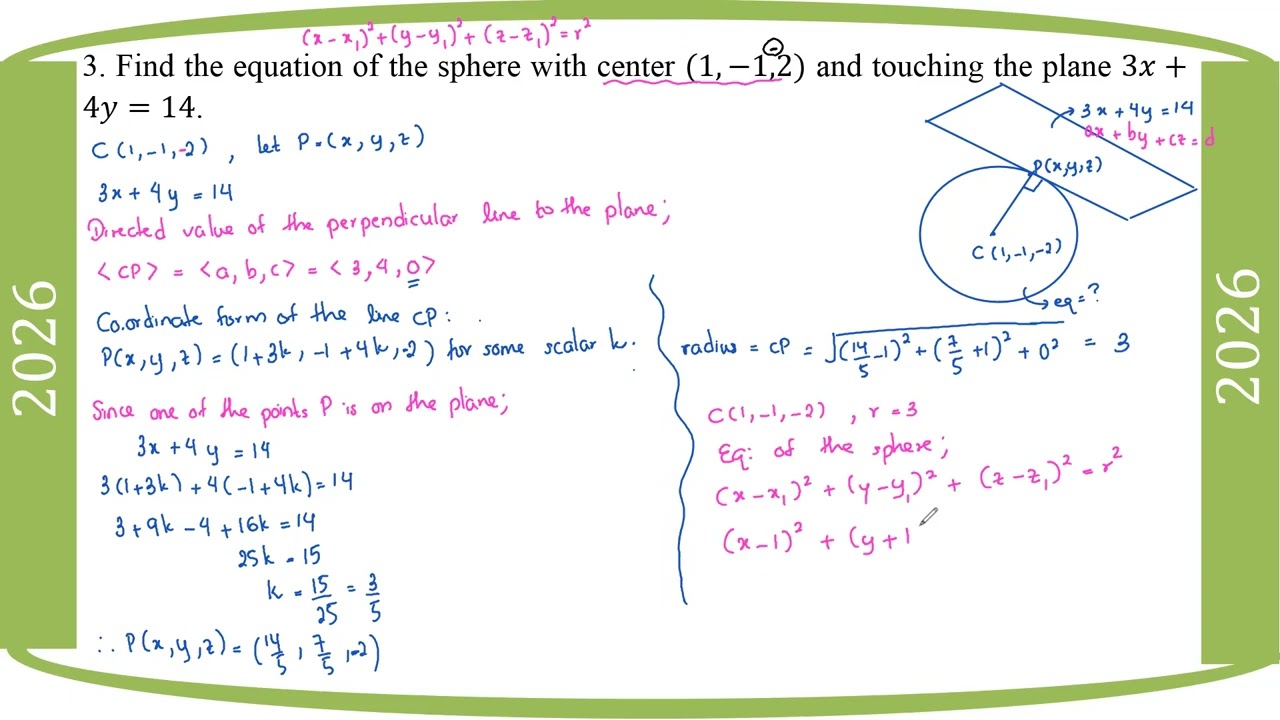 (x-x₁)² + (y-y₁)² + (z-z₁)² = r²
3. Find the equation of the sphere with center (1, −1,2) and touching the plane 3x +
4y = 14.
-
C(1,-1,-2) , let P=(x,y,z)
3x+4y = 14
Directed value of the perpendicular line to the plane;
<CP> = <a, b, c> = <3, 4, 0>
Co.ordinate form of the line CP:
P(x, y, z) = (1+3k, -1+4k, -2) for some scalar k.
Since one of the points P is on the plane;
3x+4y = 14
3(1+3k) + 4(-1+4k) = 14
3+9k-4+16k = 14
25k = 15
k = 15/25 = 3/5
∴ P(x,y,z) = (14/5, 7/5, -2)
3x+4y = 14
ax + by + cz = d
P(x,y,z)
C(1,-1,-2)
eq = ?
radius = CP = √(14/5 -1)² + (7/5 +1)² + 0² = 3
C(1,-1,-2) , r = 3
Eq: of the sphere;
(x-x₁)² + (y-y₁)² + (z-z₁)² = r²
(x-1)² + (y+1
2026
2026